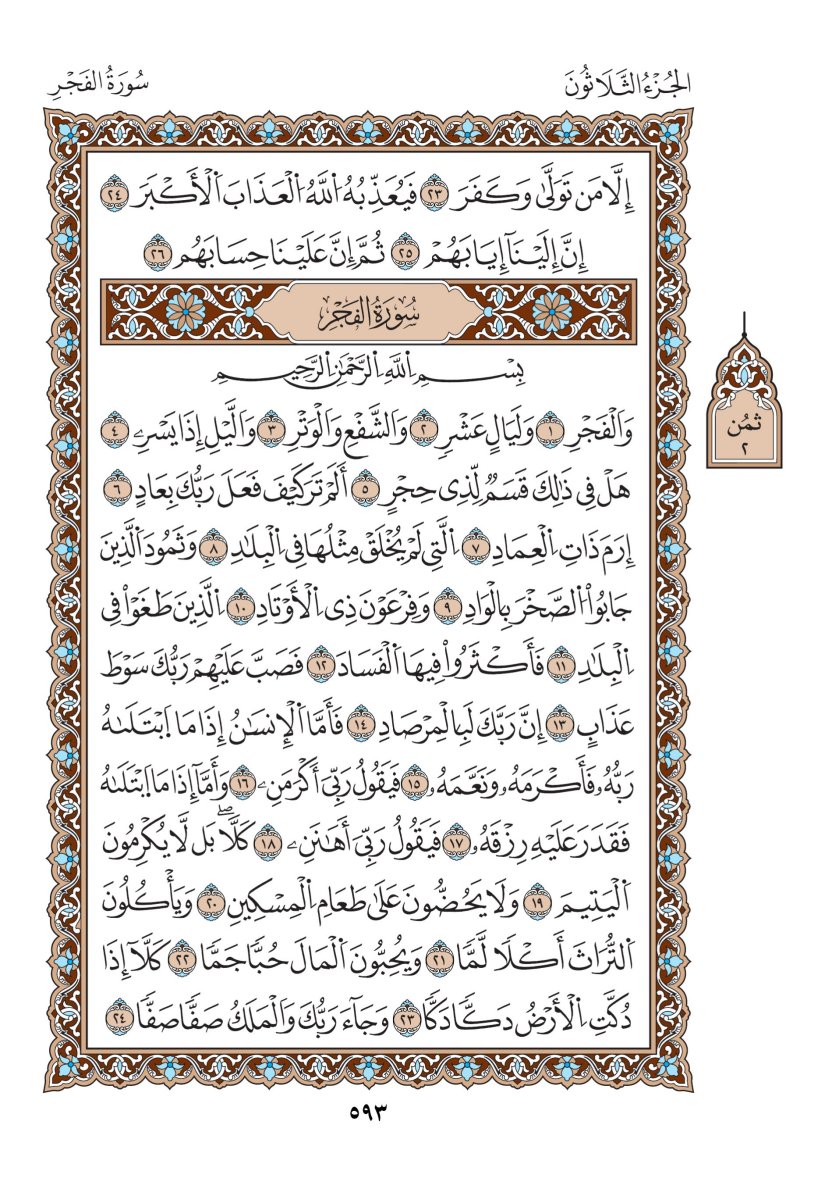 الجُزْءُ الثَّلَاثُونَ
سُورَةُ الفَجْرِ
إِلَّا مَن تَوَلَّىٰ وَكَفَرَ ٢٣ فَيُعَذِّبُهُ اُللَّهُ اُلْعَذَابَ اَلْأَكْبَرَ ٢٤
إِنَّ إِلَيْنَآ إِيَابَهُمْ ٢٥ ثُمَّ إِنَّ عَلَيْنَا حِسَابَهُم ٢٦
سُورَةُ الفَجْرِ
بِسْمِ اِللَّهِ اِلرَّحْمَٰنِ اِلرَّحِيمِ
وَالْفَجْرِ ١ وَلَيَالٍ عَشْرٍ ٢ وَالشَّفْعِ وَالْوَتْرِ ٣ وَالَّيْلِ إِذَا يَسْرِۦ ٤
هَلْ فِي ذَٰلِكَ قَسَمٌ لِّذِي حِجْرٍ ٥ أَلَمْ تَرَ كَيْفَ فَعَلَ رَبُّكَ بِعَادٍ ٦
إِرَمَ ذَاتِ اِلْعِمَادِ ٧ اِلَّتِي لَمْ يُخْلَقْ مِثْلُهَا فِي اِلْبِلَٰدِ ٨ وَثَمُودَ اَلَّذِينَ
جَابُواْ اُلصَّخْرَ بِالْوَادِ ٩ وَفِرْعَوْنَ ذِي اِلْأَوْتَادِ ١٠ اِلَّذِينَ طَغَوْاْ فِي
اِلْبِلَٰدِ ١١ فَأَكْثَرُواْ فِيهَا اَلْفَسَادَ ١٢ فَصَبَّ عَلَيْهِمْ رَبُّكَ سَوْطَ
عَذَابٍ ١٣ إِنَّ رَبَّكَ لَبِالْمِرْصَادِ ١٤ فَأَمَّا اَلْإِنسَٰنُ إِذَا مَا اَبْتَلَىٰهُ
رَبُّهُۥ فَأَكْرَمَهُۥ وَنَعَّمَهُۥ ١٥ فَيَقُولُ رَبِّيَ أَكْرَمَنِۦ ١٦ وَأَمَّآ إِذَا مَا اَبْتَلَىٰهُ
فَقَدَرَ عَلَيْهِ رِزْقَهُۥ ١٧ فَيَقُولُ رَبِّيَ أَهَٰنَنِۦ ١٨ كَلَّاۖ بَل لَّا يُكْرِمُونَ
اَلْيَتِيمَ ١٩ وَلَا يَحُضُّونَ عَلَىٰ طَعَامِ اِلْمِسْكِينِ ٢٠ وَيَأْكُلُونَ
اَلتُّرَاثَ أَكْلًا لَّمًّا ٢١ وَيُحِبُّونَ اَلْمَالَ حُبًّا جَمًّا ٢٢ كَلَّآ إِذَا
دُكَّتِ اِلْأَرْضُ دَكًّا دَكًّا ٢٣ وَجَآءَ رَبُّكَ وَالْمَلَكُ صَفًّا صَفًّا ٢٤
ثمُن
٢
٥٩٣